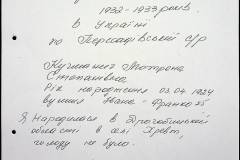 1932-1933 років
в Україні
по Персадівській с/р
Кучманич Мотрона
Степанівна
Рік народження 03.04.1924
вулиця Івана-Франко 55
Я Народилася в
області в селі
голоду не було.